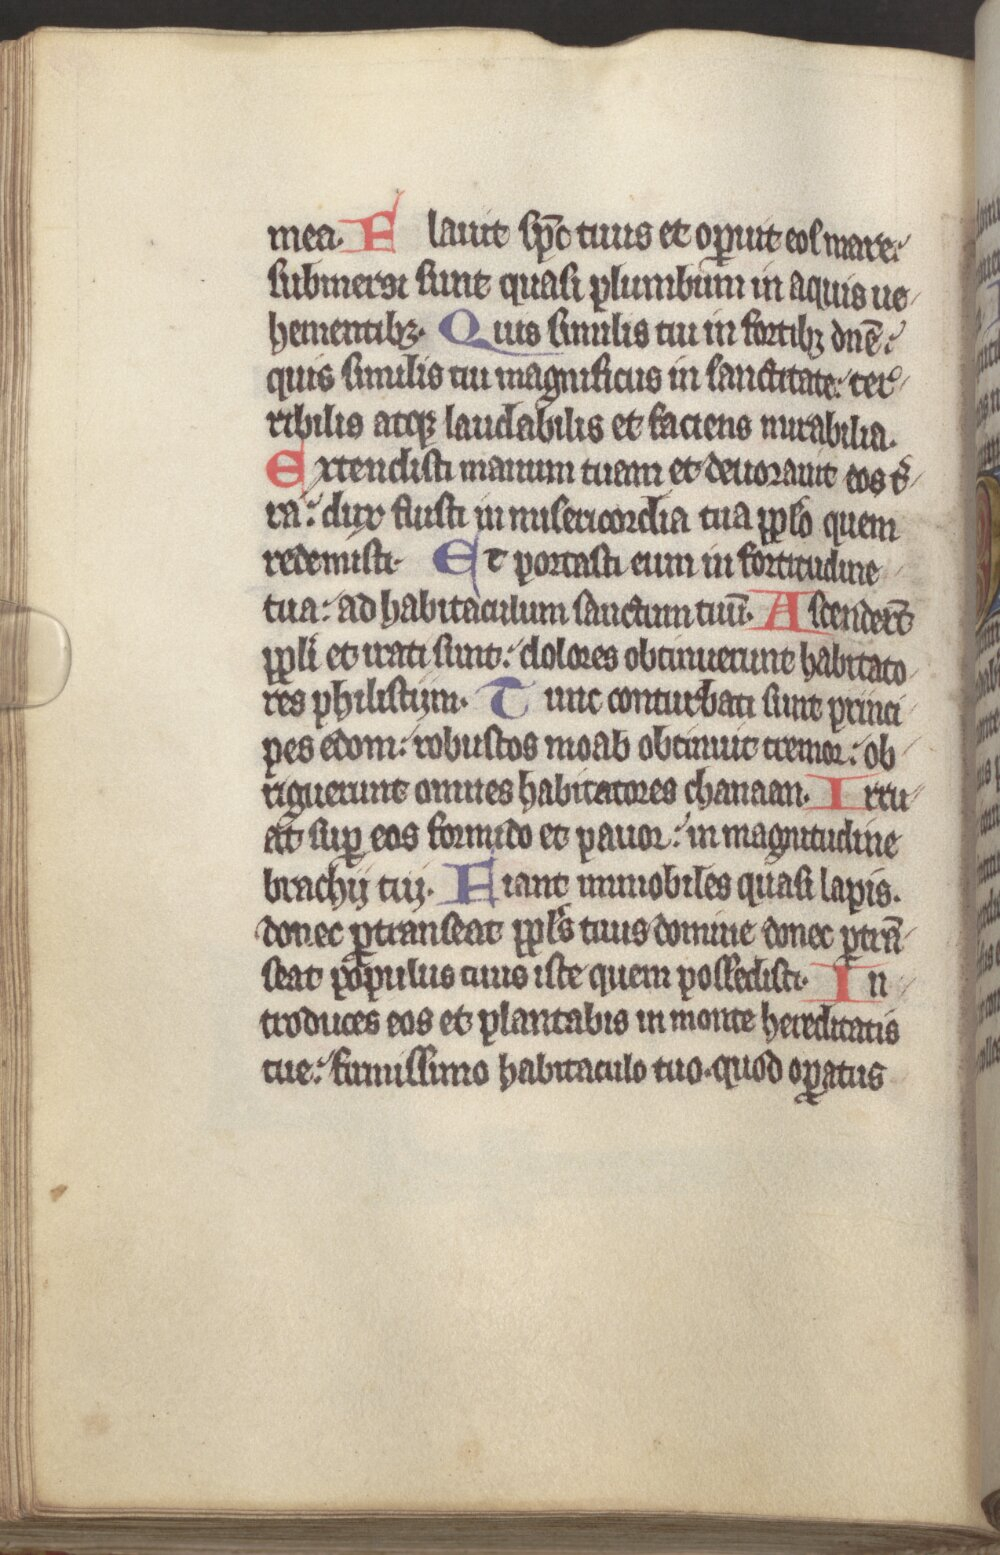 mea. Flauit spc̄ tuus et oꝑuit eos mare:
submersi sunt quasi plumbum in aquis ue
hementibꝫ. Quis similis tui in fortibꝫ dn̄e:
quis similis tui magnificus in sanctitate: ter
ribilis atqꝫ laudabilis et faciens mirabilia.
Extendisti manum tuam et deuorauit eos t̾
ra: dux fuisti in misericordia tua pp̄lo quem
redemisti. Et portasti eum in fortitudine
tua: ad habitaculum sanctum tuū. Ascenderūt
pp̄li et irati sunt: dolores obtinuerunt habitato
res philistijm. Tunc conturbati sunt princi
pes edom: robustos moab obtinuit tremor: ob
riguerunt omnes habitatores chanaan. Irru
at suꝑ eos formido et pauor: in magnitudine
brachij tui. Fiant immobiles quasi lapis.
donec ꝑtranseat pp̄ls tuus domine donec ꝑtrā
seat populus tuus iste quem possedisti. In
troduces eos et plantabis in monte hereditatis
tue: firmissimo habitaculo tuo. quod oꝑatus